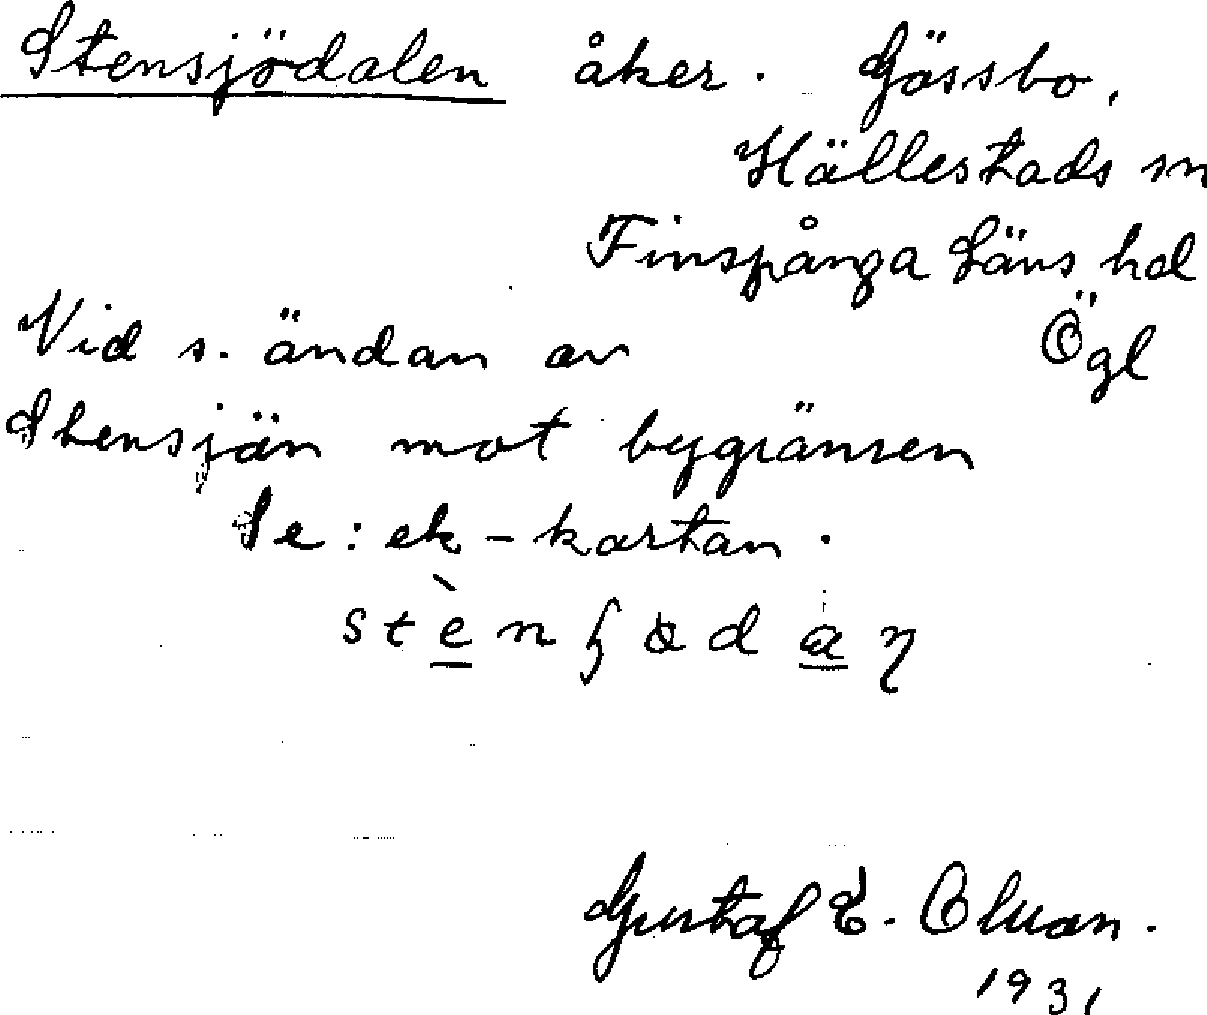 Stensjödalen åker. Gässbo,
Hällestads sn
Finspånga Läns hd
Ögl
Vid s. ändan av
Stensjön mot bygränsen
Se: ek-kartan.
Gustaf E.
1931